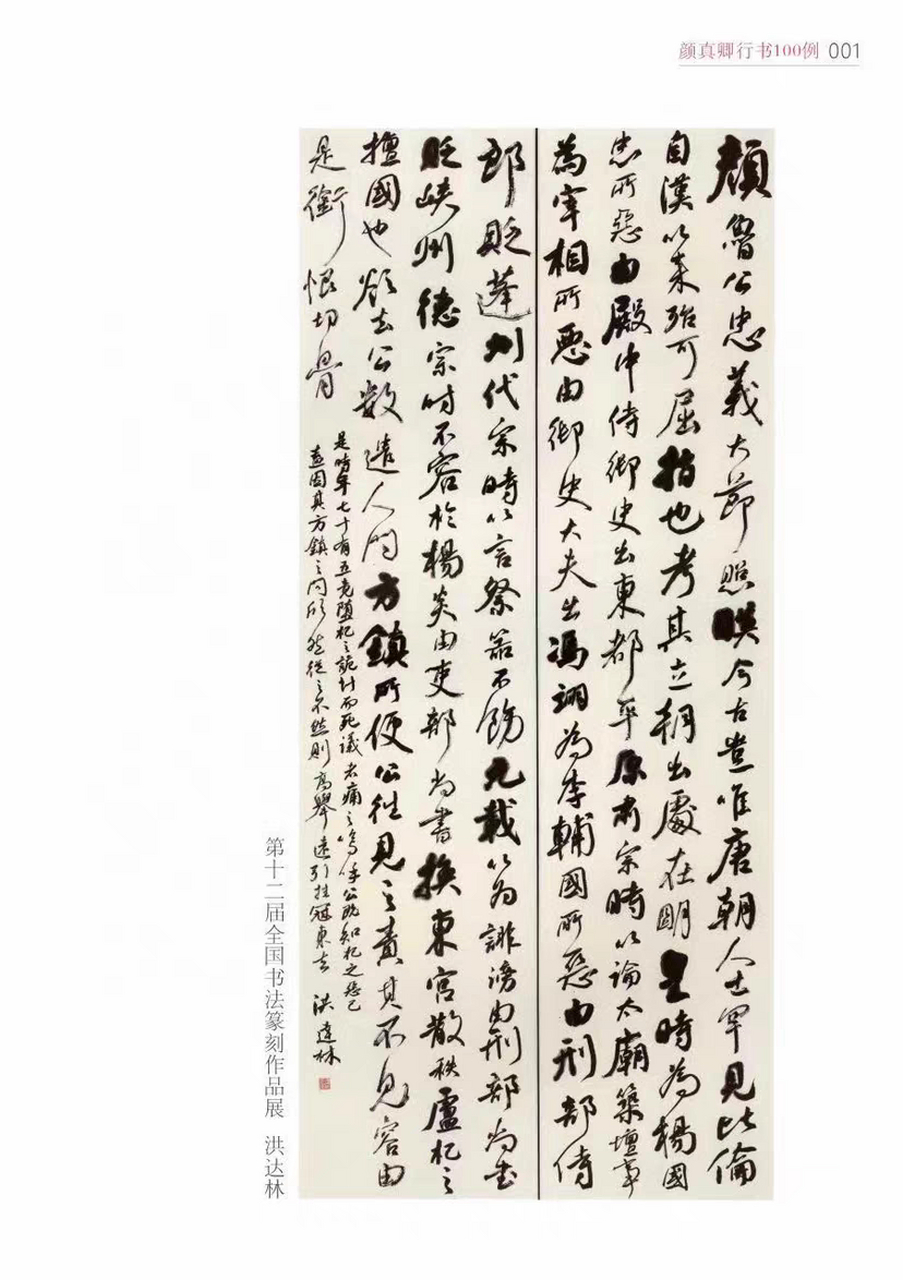 颜真卿行书100例 001
顏魯公忠義大節照暎今古豈唯唐朝人士罕見比倫
自漢以来殆可屈指也考其立朝出處在明皇時為楊國
忠所惡由殿中侍御史出東都平原肅宗時以論太廟築壇事
為宰相所惡由御史大夫出馮翊為李輔國所惡由刑部侍
郎貶蓬州代宗時以言祭器不飭元載以為誹謗由刑部尚書
貶峽州德宗時不容於楊炎由吏部尚書換東宮散秩盧杞之
擅國也欲去公數遣人問方鎮所便公往見之責其不見容由
是銜恨切骨
是時年七十有五竟墮杞之詭計而死議者痛之嗚呼公既知杞之惡己
盍因其方鎮之問欣然從之不然則高舉遠引挂冠東去 洪達林
第十二届全国书法篆刻作品展 洪达林